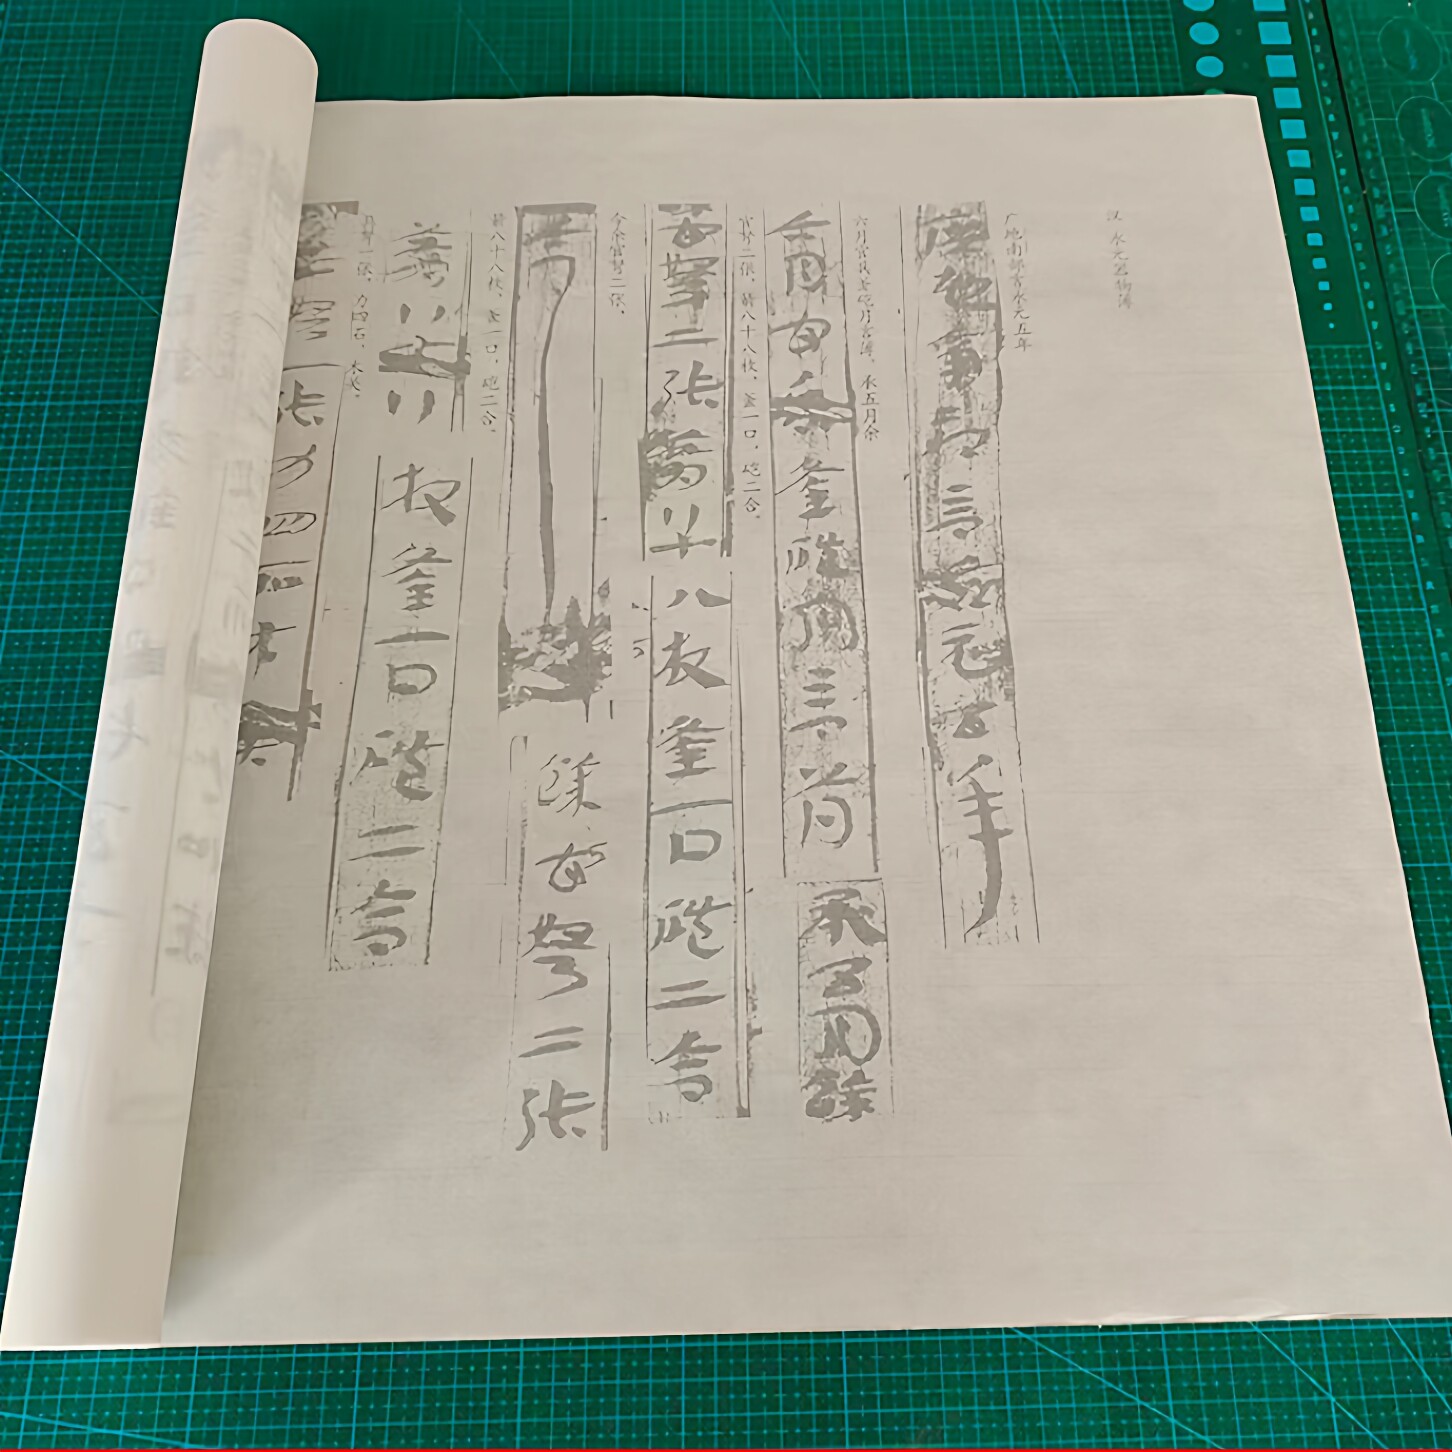 汉 永元器物簿
广地南部言永元五年
廣地南部言永元五年
六月官兵釜砲月言簿。承五月余
六月官兵釜磑月言簿承五月餘
官弩二张，箭八十八枚，釜一口，砲二合。
官弩二張箭八十八枚釜一口磑二合
今余官弩二张，
今餘官弩二張
箭八十八枚，釜一口，砲二合。
箭八十八枚釜一口磑二合
具弩一张，力四石，木关。
具弩一張力四石木关